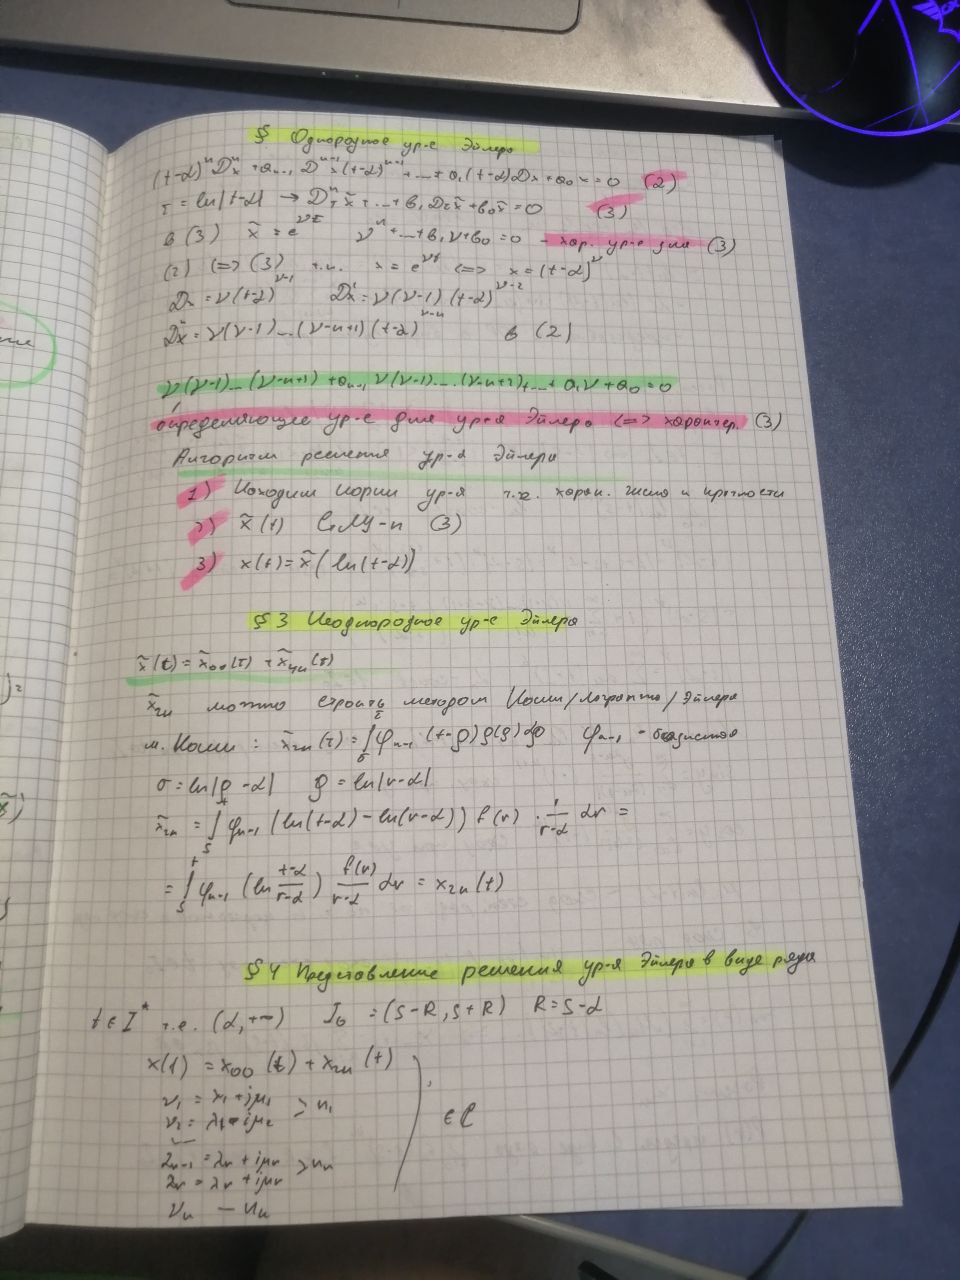 § Однородное ур-е Эйлера
(t-α)ⁿ Dⁿx + aₙ₋₁ Dⁿ⁻¹x (t-α)ⁿ⁻¹ + ... + a₁(t-α)Dx + a₀x = 0 (2)
τ = ln|t-α| → Dⁿ_τ x̃ + ... + b₁D_τ x̃ + b₀x̃ = 0 (3)
в (3) x̃ = e^{ντ} νⁿ + ... + b₁ν + b₀ = 0 - хар. ур-е для (3)
(2) <=> (3) т.к. x = e^{ντ} <=> x = (t-α)^ν
Dx = ν(t-α)^{ν-1} D²x = ν(ν-1)(t-α)^{ν-2}
Dⁿx = ν(ν-1)...(ν-n+1)(t-α)^{ν-n} в (2)
ν(ν-1)...(ν-n+1) + aₙ₋₁ ν(ν-1)...(ν-n+2) + ... + a₁ν + a₀ = 0
определяющее ур-е для ур-я Эйлера <=> характер. (3)
Алгоритм решения ур-я Эйлера
1) Находим корни ур-я т.е. харак. числа и кратности
2) x̃(t) (3)
3) x(t) = x̃(ln(t-α))
§ 3 Неоднородное ур-е Эйлера
x̃(t) = x̃₀₀(τ) + x̃чн(τ)
x̃чн можно строить методом Коши/Лагранжа/Эйлера
м. Коши: x̃чн(τ) = ∫_σ^τ φₙ₋₁ (t-ρ)g(ρ)dρ φₙ₋₁ -
σ = ln|ρ-α| ρ = ln|r-α|
x̃чн = ∫_s^t φₙ₋₁ (ln(t-α) - ln(r-α)) f(r) · 1/(r-α) dr =
= ∫_s^t φₙ₋₁ (ln (t-α)/(r-α)) f(r)/(r-α) dr = xчн(t)
§ 4 Представление решения ур-я Эйлера в виде ряда
t ∈ I* т.е. (α, +∞) I₀ = (s-R, s+R) R = s-α
x(t) = x₀₀(t) + xчн(t)
ν₁ = λ₁ + iμ₁ > n₁
∈ ℂ